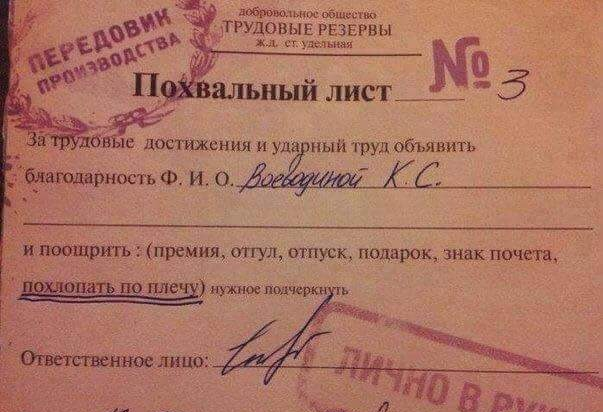 добровольное общество
ТРУДОВЫЕ РЕЗЕРВЫ
ж.д. ст. удельная
ПЕРЕДОВИК
ПРОИЗВОДСТВА
Похвальный лист № 3
За трудовые достижения и ударный труд объявить
благодарность Ф. И. О. Воеводиной К. С.
и поощрить : (премия, отгул, отпуск, подарок, знак почета,
похлопать по плечу) нужное подчеркнуть
Ответственное лицо:
ЛИЧНО В